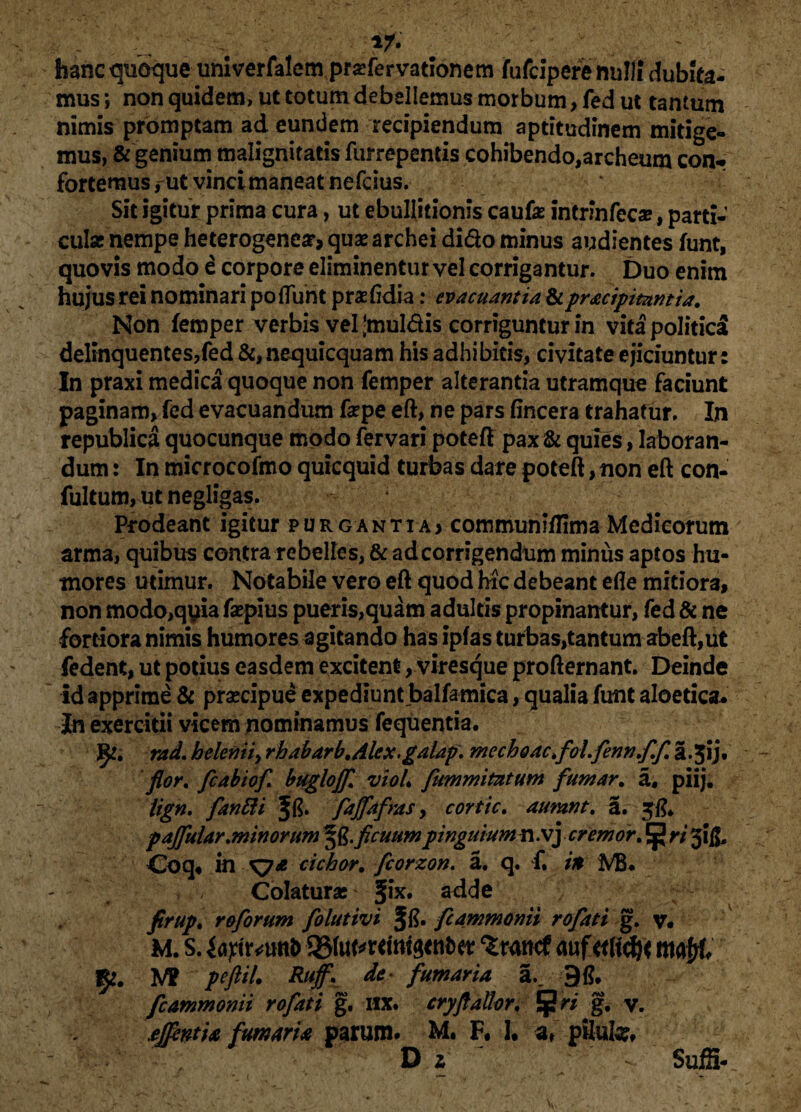 17.
hanc quoque univerſalem præſervationem ſuſcipere nulli dubita-
mus; non quidem, ut totum debellemus morbum, ſed ut tantum
nimis promptam ad eundem recipiendum aptitudinem mitige-
mus, & genium malignitatis ſurrepentis cohibendo, archeum con-
fortemus, ut vinci maneat neſcius.
Sit igitur prima cura, ut ebullitionis cauſæ intrinſecæ, parti-
culæ nempe heterogeneæ, quæ archei dicto minus audientes ſunt,
quovis modo è corpore eliminentur vel corrigantur. Duo enim
hujus rei nominari poſſunt præſidia: evacuantia & præcipitantia.
Non ſemper verbis vel mulctis corriguntur in vitâ politicâ
delinquentes, ſed &, nequicquam his adhibitis, civitate ejiciuntur:
In praxi medicâ quoque non ſemper alterantia utramque faciunt
paginam, ſed evacuandum ſæpe eſt, ne pars ſincera trahatur. In
republicâ quocunque modo ſervari poteſt pax & quies, laboran-
dum: In microcoſmo quicquid turbas dare poteſt, non eſt con-
ſultum, ut negligas.
Prodeant igitur PURGANTIA, communiſſima Medicorum
arma, quibus contra rebelles, & ad corrigendum minùs aptos hu-
mores utimur. Notabile vero eſt quod hîc debeant eſſe mitiora,
non modo, quia ſæpius pueris, quàm adultis propinantur, ſed & ne
fortiora nimis humores agitando has ipſas turbas, tantum abeſt, ut
ſedent, ut potius easdem excitent, viresque proſternant. Deinde
id apprimè & præcipuè expediunt balſamica, qualia ſunt aloetica.
In exercitii vicem nominamus ſequentia.
℞. rad. helenii, rhabarb. Alex. galap. mechoac. fol. ſenn. ſ. ſ. ā. ʒij.
flor. ſcabioſ. bugloſſ. viol. ſummitatum fumar. ā. piij.
lign. ſancti ℥ß. ſaſſafras, cortic. aurant. ā. ʒß.
paſſular. minorum ℥ß. ficuum pinguium n.vj cremor. 🜿ri ʒiß.
Coq. in 🜄a cichor. ſcorzon. ā. q. ſ. in MB.
Colaturæ ℥ix. adde
ſirup. roſorum ſolutivi ℥ß. ſcammonii roſati g. v.
M. S. Laxir- und Blut-reinigender Tranck auf etliche mahl.
℞. M peſtil. Ruff. de fumaria ā. ℈ß.
ſcammonii roſati g. iix. cryſtallor. 🜿ri g. v.
eſſentiæ fumariæ parum. M. F. l. a. pilulæ.
D 2 Suffi-